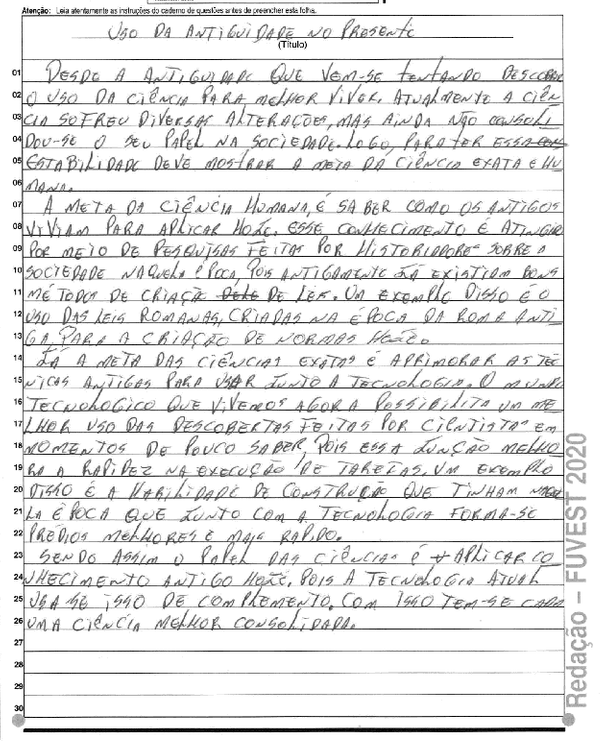 Atenção: Leia atentamente as instruções do caderno de questões antes de preencher esta folha.
USO DA ANTIGUIDADE NO PRESENTE
(Título)
01 DESDE A ANTIGUIDADE QUE VEM-SE TENTANDO DESCOBRIR
02 O USO DA CIÊNCIA PARA MELHOR VIVER. ATUALMENTE A CIÊN
03 CIA SOFREU DIVERSAS ALTERAÇÕES, MAS AINDA NÃO CONSOLI
04 DOU-SE O SEU PAPEL NA SOCIEDADE. LOGO, PARA TER ESSA
05 ESTABILIDADE DEVE MOSTRAR A META DA CIÊNCIA EXATA E HU
06 MANA.
07 A META DA CIÊNCIA HUMANA, É SABER COMO OS ANTIGOS
08 VIVIAM PARA APLICAR HOJE. ESSE CONHECIMENTO É ATINGIR
09 POR MEIO DE PESQUISAS FEITAS POR HISTORIADORES SOBRE A
10 SOCIEDADE NAQUELA ÉPOCA, POIS ANTIGAMENTE JÁ EXISTIAM BONS
11 MÉTODOS DE CRIAÇÃ DE LEIS. UM EXEMPLO DISSO É O
12 USO DAS LEIS ROMANAS, CRIADAS NA ÉPOCA DA ROMA ANTI
13 GA, PARA A CRIAÇÃO DE NORMAS HOJE.
14 JÁ A META DAS CIÊNCIAS EXATAS É APRIMORAR AS TÉC
15 NICAS ANTIGAS PARA USAR JUNTO A TECNOLOGIA. O MUNDO
16 TECNOLÓGICO QUE VIVEMOS AGORA POSSIBILITA UM ME
17 LHOR USO DAS DESCOBERTAS FEITAS POR CIENTISTAS EM
18 MOMENTOS DE POUCO SABER, POIS ESSA JUNÇÃO MELHO
19 RA A RAPIDEZ NA EXECUÇÃO DE TAREFAS. UM EXEMPLO
20 DISSO É A HABILIDADE DE CONSTRUÇÃO QUE TINHAM NAQUE
21 LA ÉPOCA QUE JUNTO COM A TECNOLOGIA FORMA-SE
22 PRÉDIOS MELHORES E MAIS RAPIDO.
23 SENDO ASSIM O PAPEL DAS CIÊNCIAS É APLICAR CO
24 NHECIMENTO ANTIGO HOJE, POIS A TECNOLOGIA ATUAL
25 USA-SE ISSO DE COMPLEMENTO. COM ISSO TEM-SE CADA
26 UMA CIÊNCIA MELHOR CONSOLIDADA.
27
28
29
30
Redação – FUVEST 2020